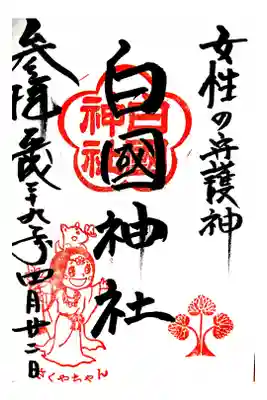 女性の守護神
白國神社
参拝平成二十九年四月廿二日
さくやちゃん